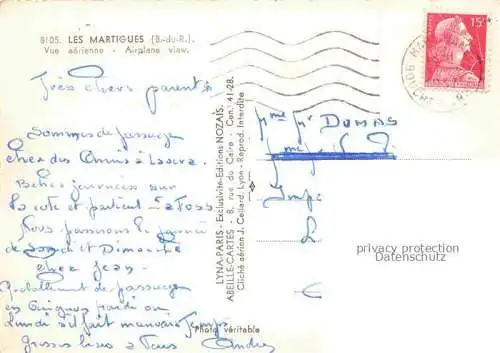 8105. LES MARTIGUES (B.-du-R.).
Vue aérienne - Airplane view.
Très chers parents
Sommes de passage
chez des Amis à
Belles journées sur
la côte et partout
Nous passerons la journée
de Samedi et Dimanche
chez Jean
Probablement de passage
en mardi ou
Lundi s'il fait mauvais temps
Grosses bises à Tous André
LYNA-PARIS - Exclusivité-Editions NOZAIS.
ABEILLE-CARTES - 8, rue du Caire - Cen. 41-28.
Cliché aérien J. Cellard, Lyon - Reprod. Interdite
Photo véritable
15F
DUMAS
privacy protection
Datenschutz